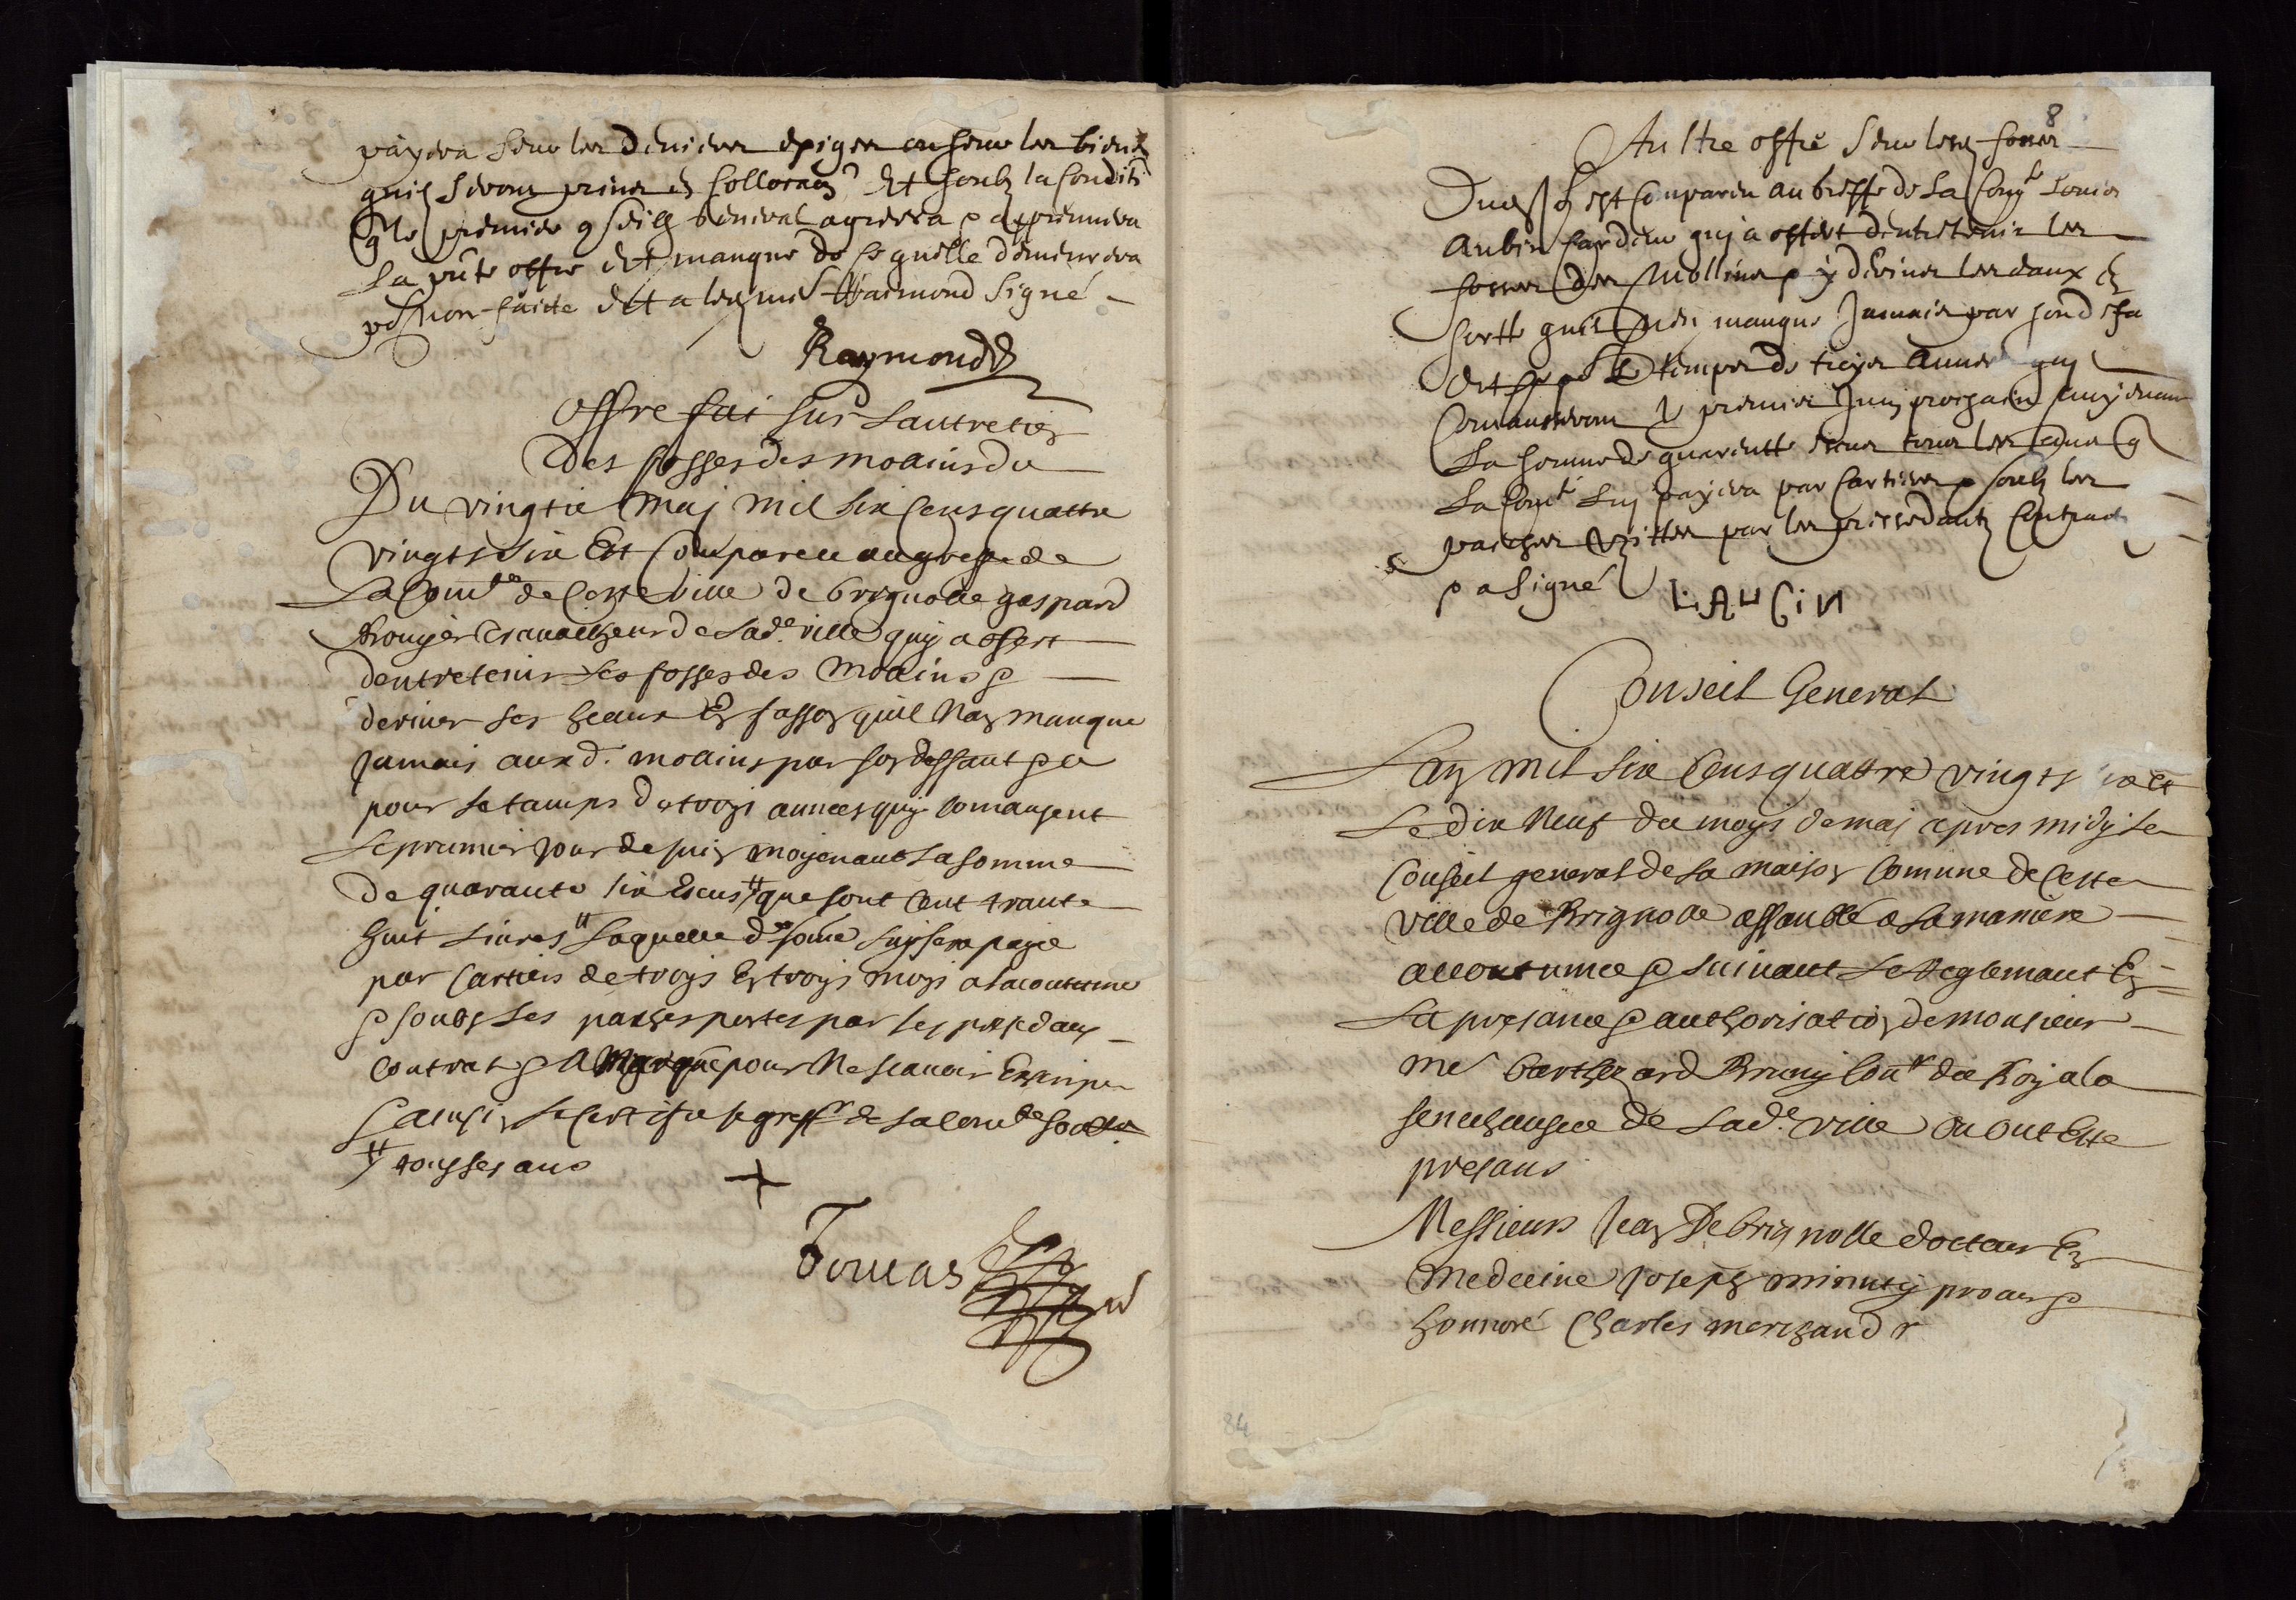 payera sur les deniers exiges ou sur les biens
quil seront prins en collocaõn Et soubz la conditi
q le premier conseilh general agreera & appreuvera
la pñte offre Et manque de ce quelle demeurera
non faicte Et a led me Raimond Signé
Raymond
offre fai sur lantretien
des fosses des molins du
Du vingtie maj mil six cens quattre
vingts six Est Compareu au greffe de
La Comté de Ceste ville de brignolle gaspard
Rougier travailheur de Lad.e ville quy a offert
dentretenir Les fosses des molins &
deriver les heaux En fasson quil Nan manque
Jamais aux d. molins par son deffaut & ce
pour le tamps de troys annees quy comansent
Le premier jour de juin moyenant la somme
de quarante six Escus que sont cent trante
huit Livres Laquelle d. some luy sera payée
par Cartiers de troys En troys moys a lacoutume
& soubz les paches portes par les presedans
contrat & A Marqué pour Ne scavoir Escripre
ainsin Le Certifie le greff.r de la comté
tous les ans
Foucas
8
Aultre offre sur lesd fosses
Dud jour est Compareu au greffe de La Comté Louis
Aubin qui a offert dentretenir les
fosses des Mollins & y deriver les eaux En
sortte quil nen manque Jamais par son defa
Et ce po le temps de troyes annees quy
Comanseront le premier Juin prochain moyenant
La somme de quarentte escus tous les ans q
La Comté luy payera par Cartiers & soubz les
paches par les precedantz Contracts
& a Signé
Conseil General
Lan mil six Cens quattre vingts six et
Le dix Neuf du moys de maj apres midy Le
Conseil general de la maison Comune de Ceste
ville de Brignolle assamblé a La maniere
accoutumee & suivant Le Reglemant En
La presance & authorisation de monsieur
me Barthezard Bruny Con.r du Roy a la
senechaussee de Lad.e ville Ou Ont Este
presans
Messieurs Jean De brignolle docteur En
Medecine Joseph minuty procur &
honnoré Charles marchand
84